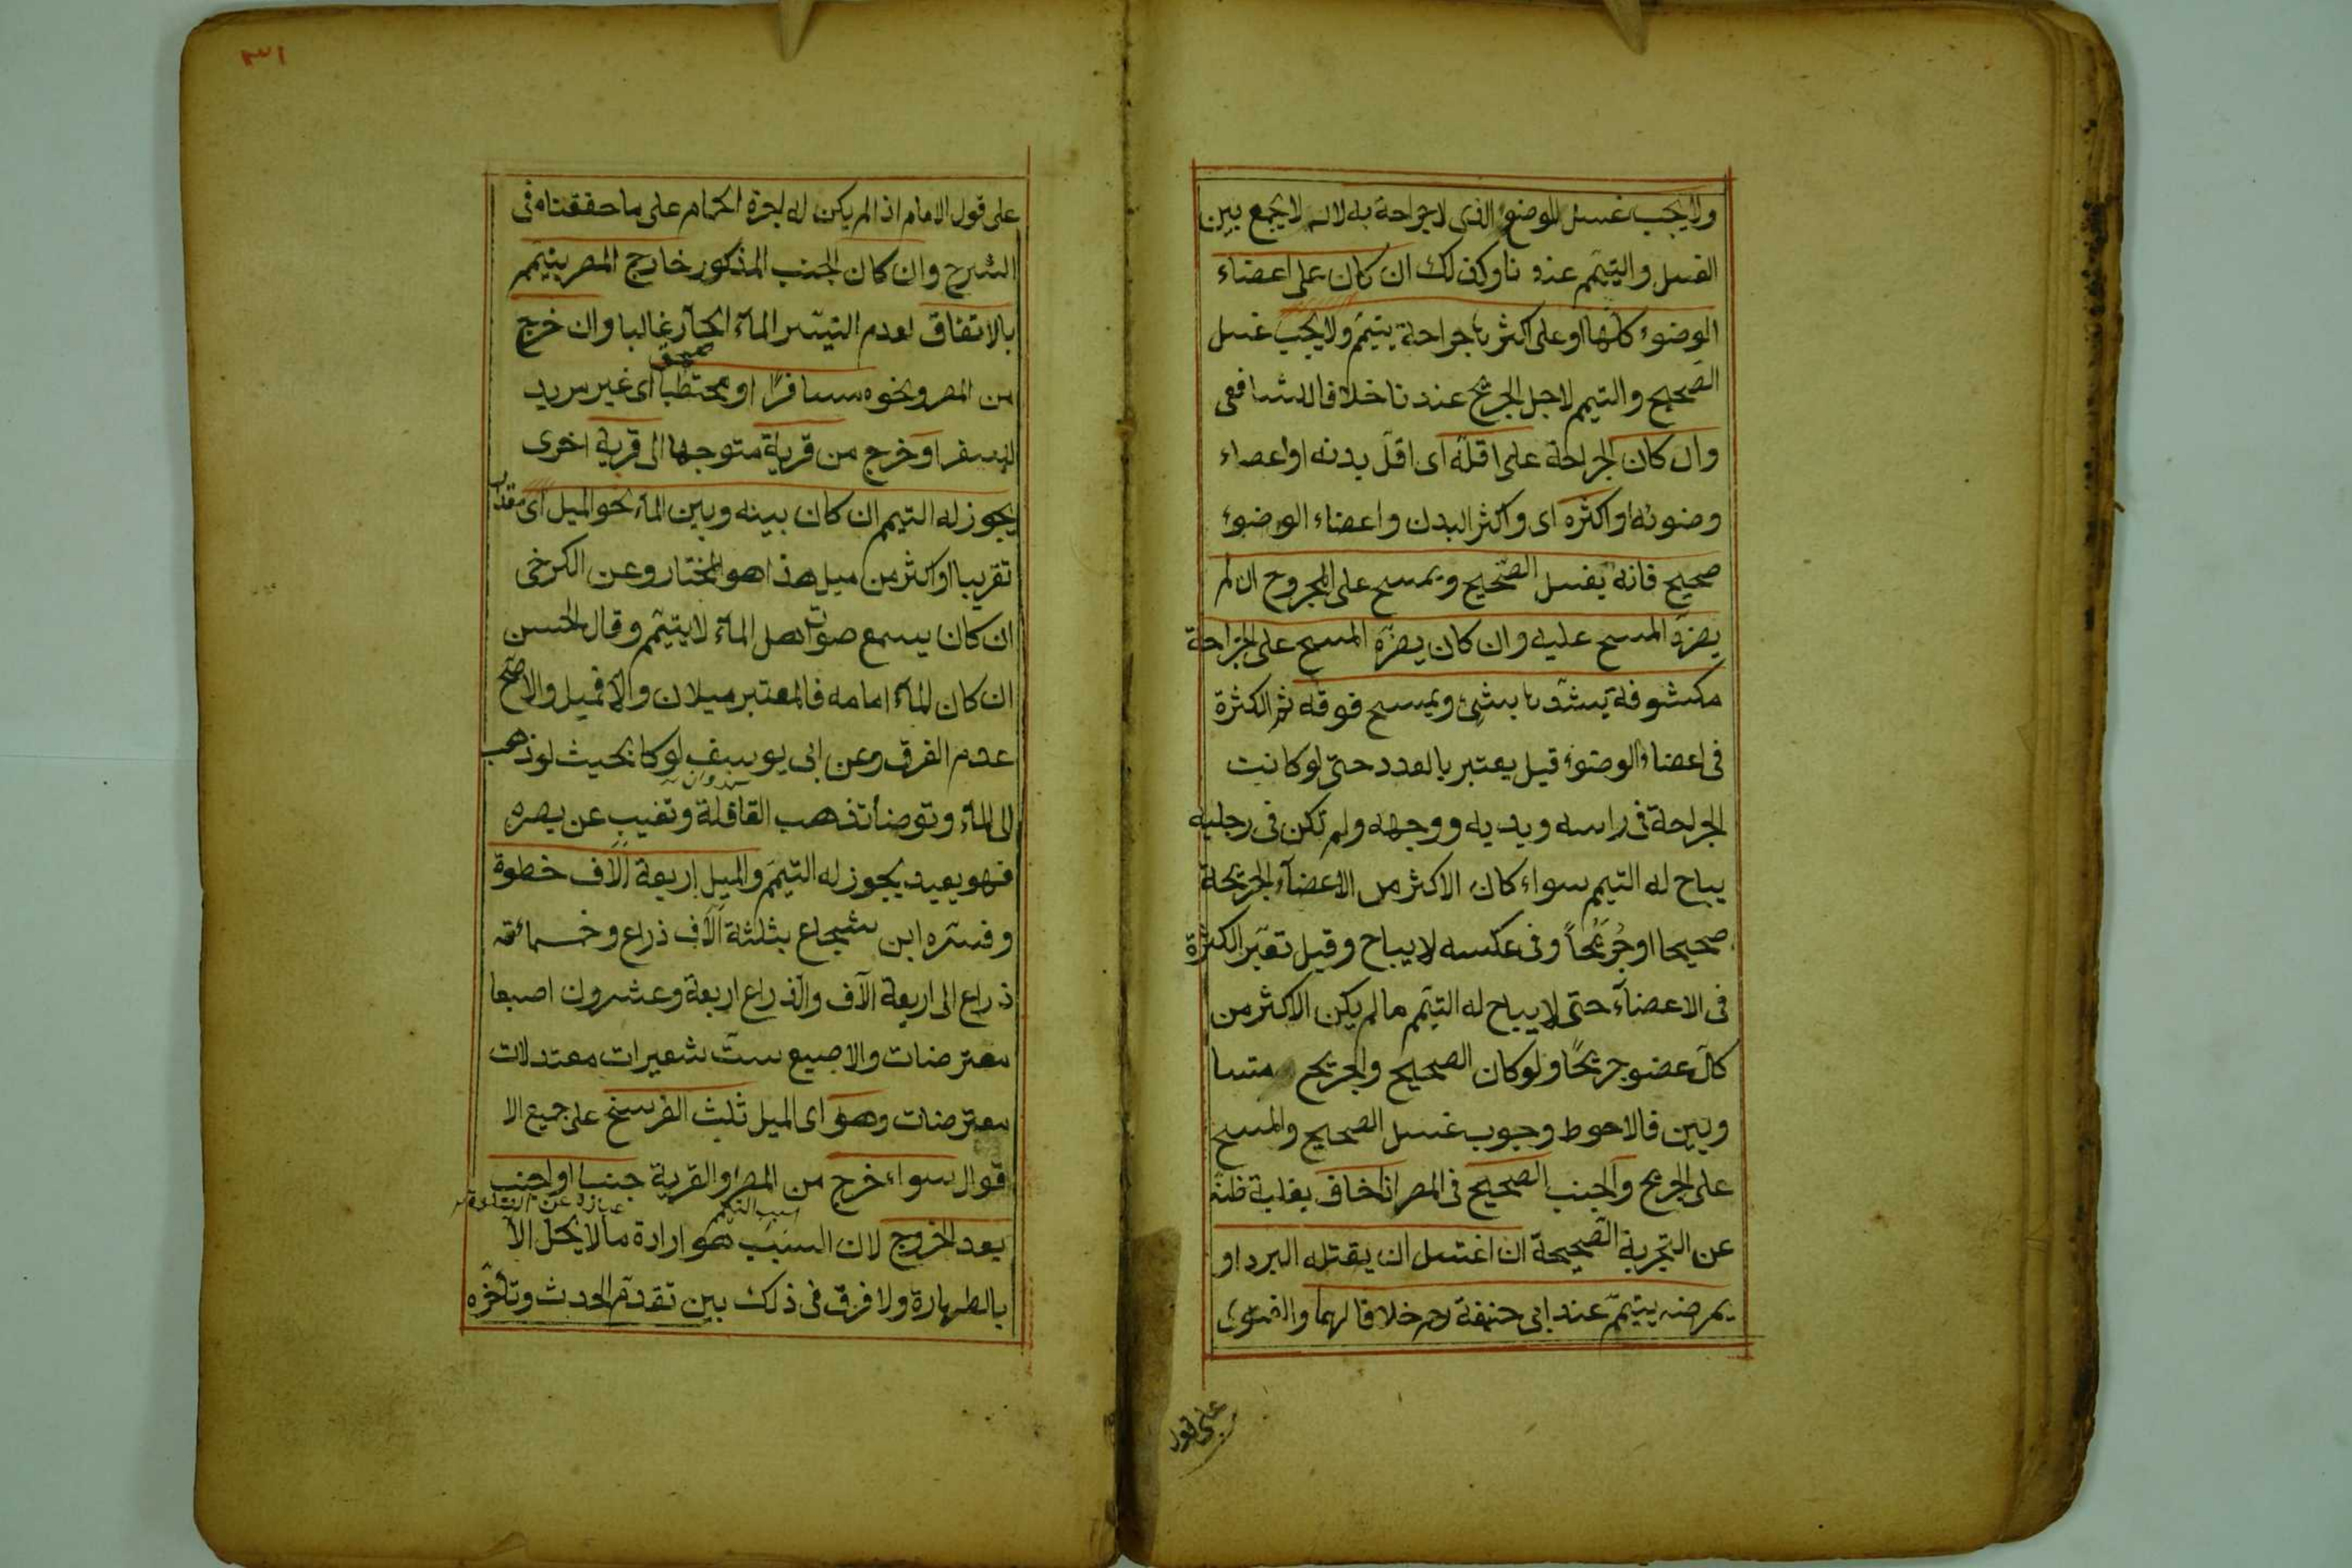 ولا يجب غسل الموضع الذى لا جراحة به لانه لا يجمع بين
الغسل والتيمّم عندنا وكذلك ان كان على اعضاء
الوضوء كلّها او على اكثرها جراحة يتيمّم ولا يجب غسل
الصّحيح والتيمم لاجل الجريح عندنا خلافا للشافعى
وان كان الجراحة على اقلّه اى اقلّ بدنه او اعضاء
وضوئه او اكثره اى واكثر البدن واعضاء الوضوء
صحيح فانه يغسل الصّحيح ويمسح على المجروح ان لم
يضرّه المسح عليه وان كان يضرّه المسح على الجراحة
مكشوفة يشدّها بشئ ويمسح فوقه ثم الكثرة
فى اعضاء الوضوء قيل يعتبر بالعدد حتى لو كانت
الجراحة فى راسه ويديه ووجهه ولم تكن فى رجليه
يباح له التيمم سواء كان الاكثر من الاعضآء الجريحة
صحيحا او جُرَيحًا وفى عكسه لا يباح وقيل تعتبر الكثرة
فى الاعضآء حتى لا يباح له التيمّم مالم يكن الاكثر من
كلّ عضو جريحًا ولو كان الصحيح والجريح متسا
ويين فالاحوط وجوب غسل الصحيح والمسح
على الجريح والجنب الصّحيح فى المصر اذا خاف بغلبة ظنّه
عن التجربة الصّحيحة ان اغتسل ان يقتله البرد او
يمرضه يتيمّم عند ابى حنيفة رحم خلافا لهما والفتوى
على قول
٣١
على قول الامام اذا لم يكن له اجرة الحمام على ما حققناه فى
الشرح وان كان الجنب المذكور خارج المصر يتيمّم
بالاتفاق لعدم التيسّر المآء الحآر غالبا وان خرج
من المصر ونحوه مسافرًا او محتطبا اى غير مريد
للسفر او خرج من قرية متوجها الى قرية اخرى
يجوز له التيمم ان كان بينه وبين المآء نحو الميل اى مقدار
تقريبا او اكثر من ميل هذا هو المختار وعن الكرخى
ان كان يسمع صوت اهل المآء لا يتيمّم وقال الحسن
ان كان المآء امامه فالمعتبر ميلان والا فميل والاصّح
عدم الفرق وعن ابى يوسف لو كا بحيث لو ذهب
الى المآء وتوضأ تذهب القافلة وتغيب عن بصره
فهو بعيد يجوز له التيمّم والميل اربعة آلاف خطوة
وفسّره ابن شجاع بثلثة آلآف ذراع وخمسمائة
ذراع الى اربعة آلآف والذراع اربعة وعشرون اصبعا
معترضات والاصبع ستّ شعيرات معتدلات
معترضات وهو اى الميل ثلث الفرسخ على جميع الا
قوال سواء خرج من المصر او القرية جنبا او اجنب
سبب التيمم
بعد الخروج لان السبب هو ارادة مالا يحلّ الآ
بالطهارة ولا فرق فى ذلك بين تقدّم الحدث وتأخّره